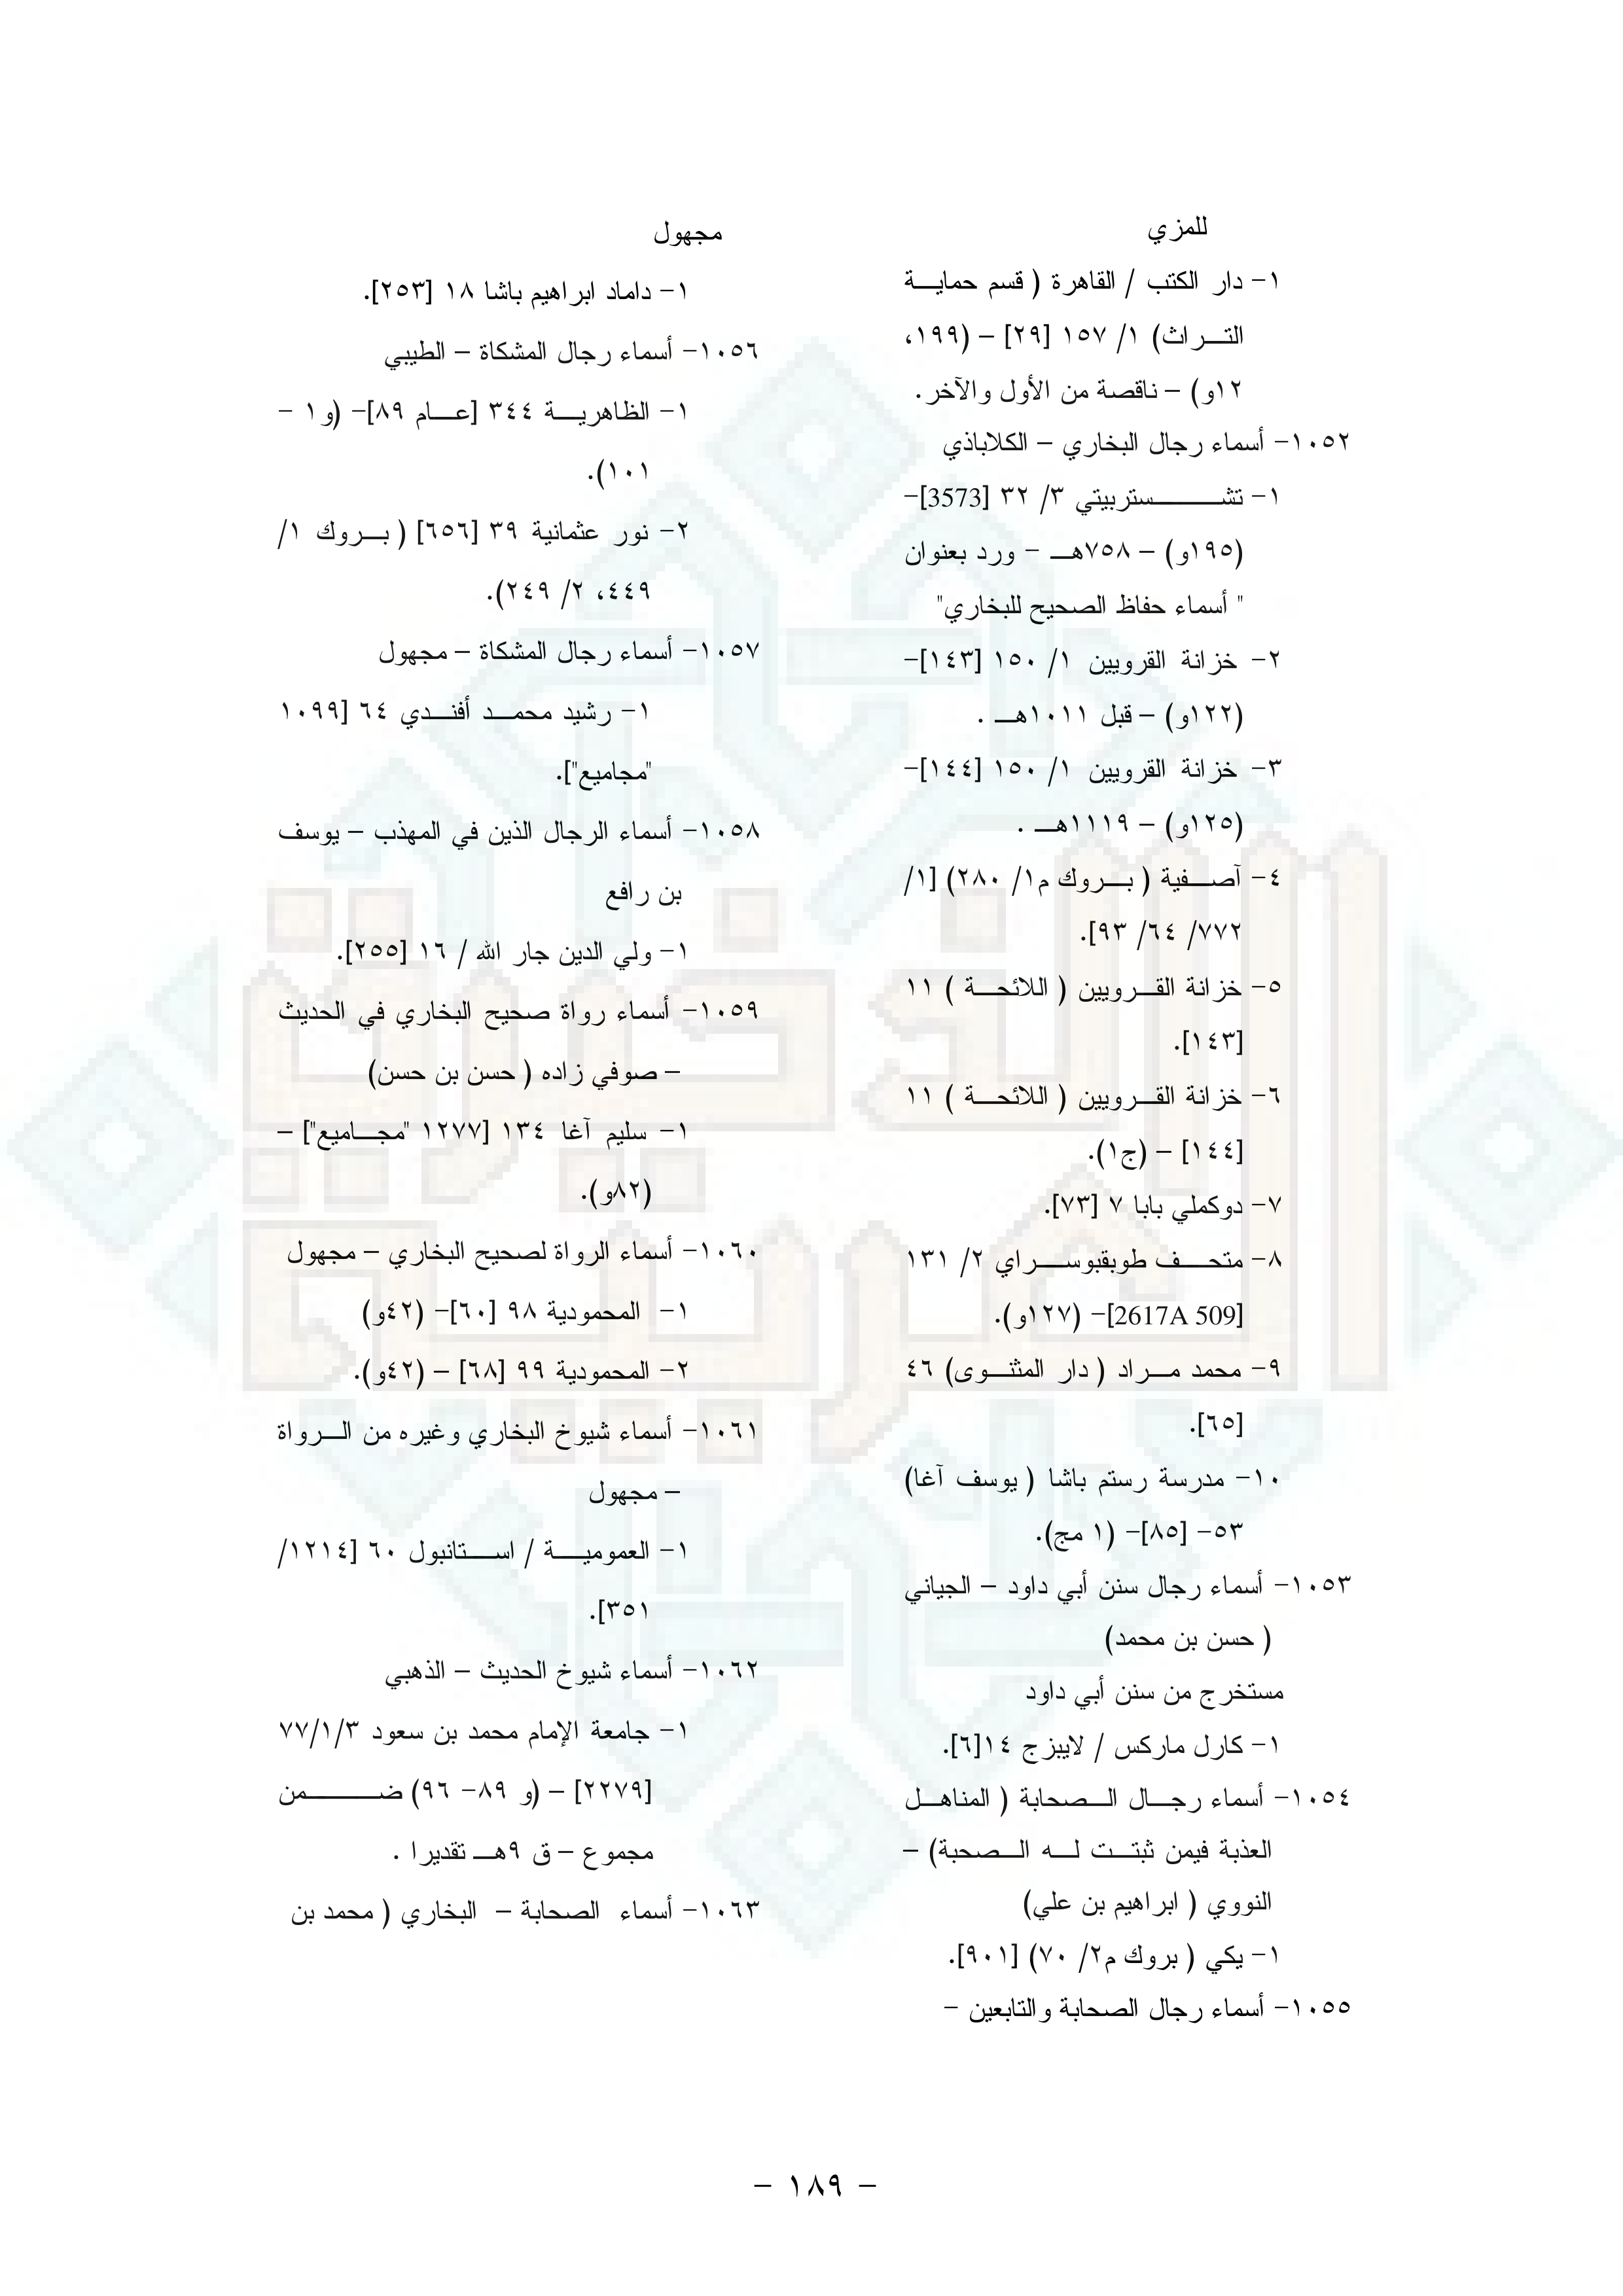 للمزي
١- دار الكتب / القاهرة ( قسم حماية
التراث) ١/ ١٥٧ [٢٩] – (١٩٩،
١٢و) – ناقصة من الأول والآخر.
١٠٥٢- أسماء رجال البخاري – الكلاباذي
١- تشستربيتي ٣/ ٣٢ [3573]-
(١٩٥و) – ٧٥٨هـ - ورد بعنوان
" أسماء حفاظ الصحيح للبخاري"
٢- خزانة القرويين ١/ ١٥٠ [١٤٣]-
(١٢٢و) – قبل ١٠١١هـ .
٣- خزانة القرويين ١/ ١٥٠ [١٤٤]-
(١٢٥و) – ١١١٩هـ .
٤- آصفية ( بروك م١/ ٢٨٠) [١/
٧٧٢/ ٦٤/ ٩٣].
٥- خزانة القرويين ( اللائحة ) ١١
[١٤٣].
٦- خزانة القرويين ( اللائحة ) ١١
[١٤٤] – (ج١).
٧- دوكملي بابا ٧ [٧٣].
٨- متحف طوبقبوسراي ٢/ ١٣١
[2617A 509]- (١٢٧و).
٩- محمد مراد ( دار المثنوى) ٤٦
[٦٥].
١٠- مدرسة رستم باشا ( يوسف آغا)
٥٣- [٨٥]- (١ مج).
١٠٥٣- أسماء رجال سنن أبي داود – الجياني
( حسن بن محمد)
مستخرج من سنن أبي داود
١- كارل ماركس / لايبزج ١٤[٦].
١٠٥٤- أسماء رجال الصحابة ( المناهل
العذبة فيمن ثبتت له الصحبة) –
النووي ( ابراهيم بن علي)
١- يكي ( بروك م٢/ ٧٠) [٩٠١].
١٠٥٥- أسماء رجال الصحابة والتابعين -
مجهول
١- داماد ابراهيم باشا ١٨ [٢٥٣].
١٠٥٦- أسماء رجال المشكاة – الطيبي
١- الظاهرية ٣٤٤ [عام ٨٩]- (و١ -
١٠١).
٢- نور عثمانية ٣٩ [٦٥٦] ( بروك ١/
٤٤٩، ٢/ ٢٤٩).
١٠٥٧- أسماء رجال المشكاة – مجهول
١- رشيد محمد أفندي ٦٤ [١٠٩٩
"مجاميع"].
١٠٥٨- أسماء الرجال الذين في المهذب – يوسف
بن رافع
١- ولي الدين جار الله / ١٦ [٢٥٥].
١٠٥٩- أسماء رواة صحيح البخاري في الحديث
– صوفي زاده ( حسن بن حسن)
١- سليم آغا ١٣٤ [١٢٧٧ "مجاميع"] –
(٨٢و).
١٠٦٠- أسماء الرواة لصحيح البخاري – مجهول
١- المحمودية ٩٨ [٦٠]- (٤٢و)
٢- المحمودية ٩٩ [٦٨] – (٤٢و).
١٠٦١- أسماء شيوخ البخاري وغيره من الرواة
– مجهول
١- العمومية / استانبول ٦٠ [١٢١٤/
٣٥١].
١٠٦٢- أسماء شيوخ الحديث – الذهبي
١- جامعة الإمام محمد بن سعود ٧٧/١/٣
[٢٢٧٩] – (و ٨٩- ٩٦) ضمن
مجموع – ق ٩هـ تقديرا .
١٠٦٣- أسماء الصحابة – البخاري ( محمد بن
- ١٨٩ -
الذخيرة
المصرية